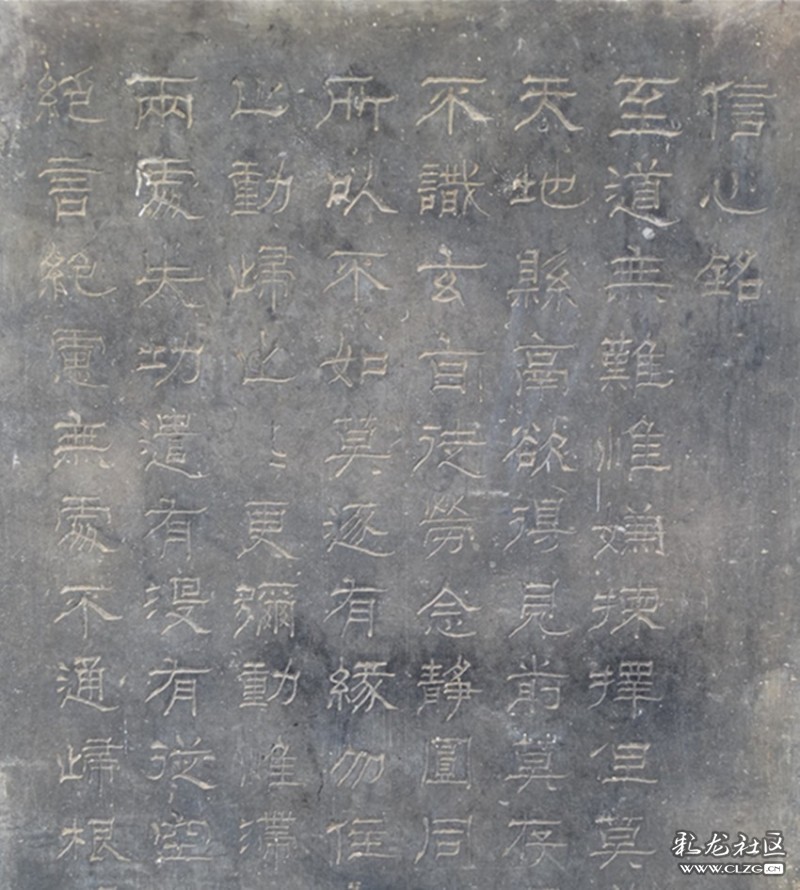 信心銘
至道無難惟嫌揀擇但莫
天地縣鬲欲得見前莫存
不識玄旨徒勞念靜圓同
所以不如莫逐有緣勿住
止動歸止止更彌動惟滯
兩處失功遣有没有從空
絕言絕慮無處不通歸根
彩龙社区
WWW.CLZG.CN